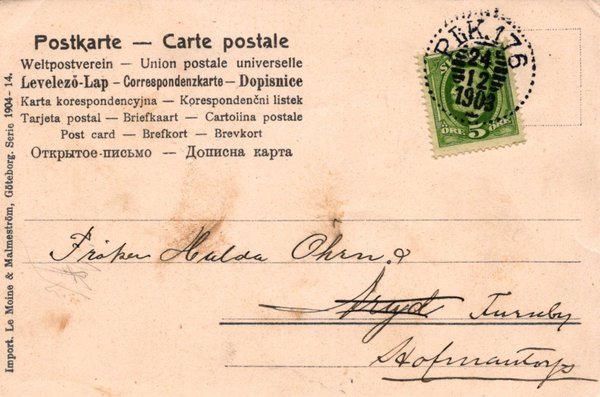 Postkarte — Carte postale
Weltpostverein — Union postale universelle
Levelező-Lap – Correspondenzkarte – Dopisnice
Karta korespondencyjna – Korespondenční listek
Tarjeta postal – Briefkaart – Cartolina postale
Post card – Brefkort – Brevkort
Открытое-письмо — Дописна карта
PLK.176
24
12
1903
5 ÖRE
Import. Le Moine & Malmeström, Göteborg. Serie 1904–14.
Fröken Hulda Ohrn
Aryd Furuby
Hofmantorp